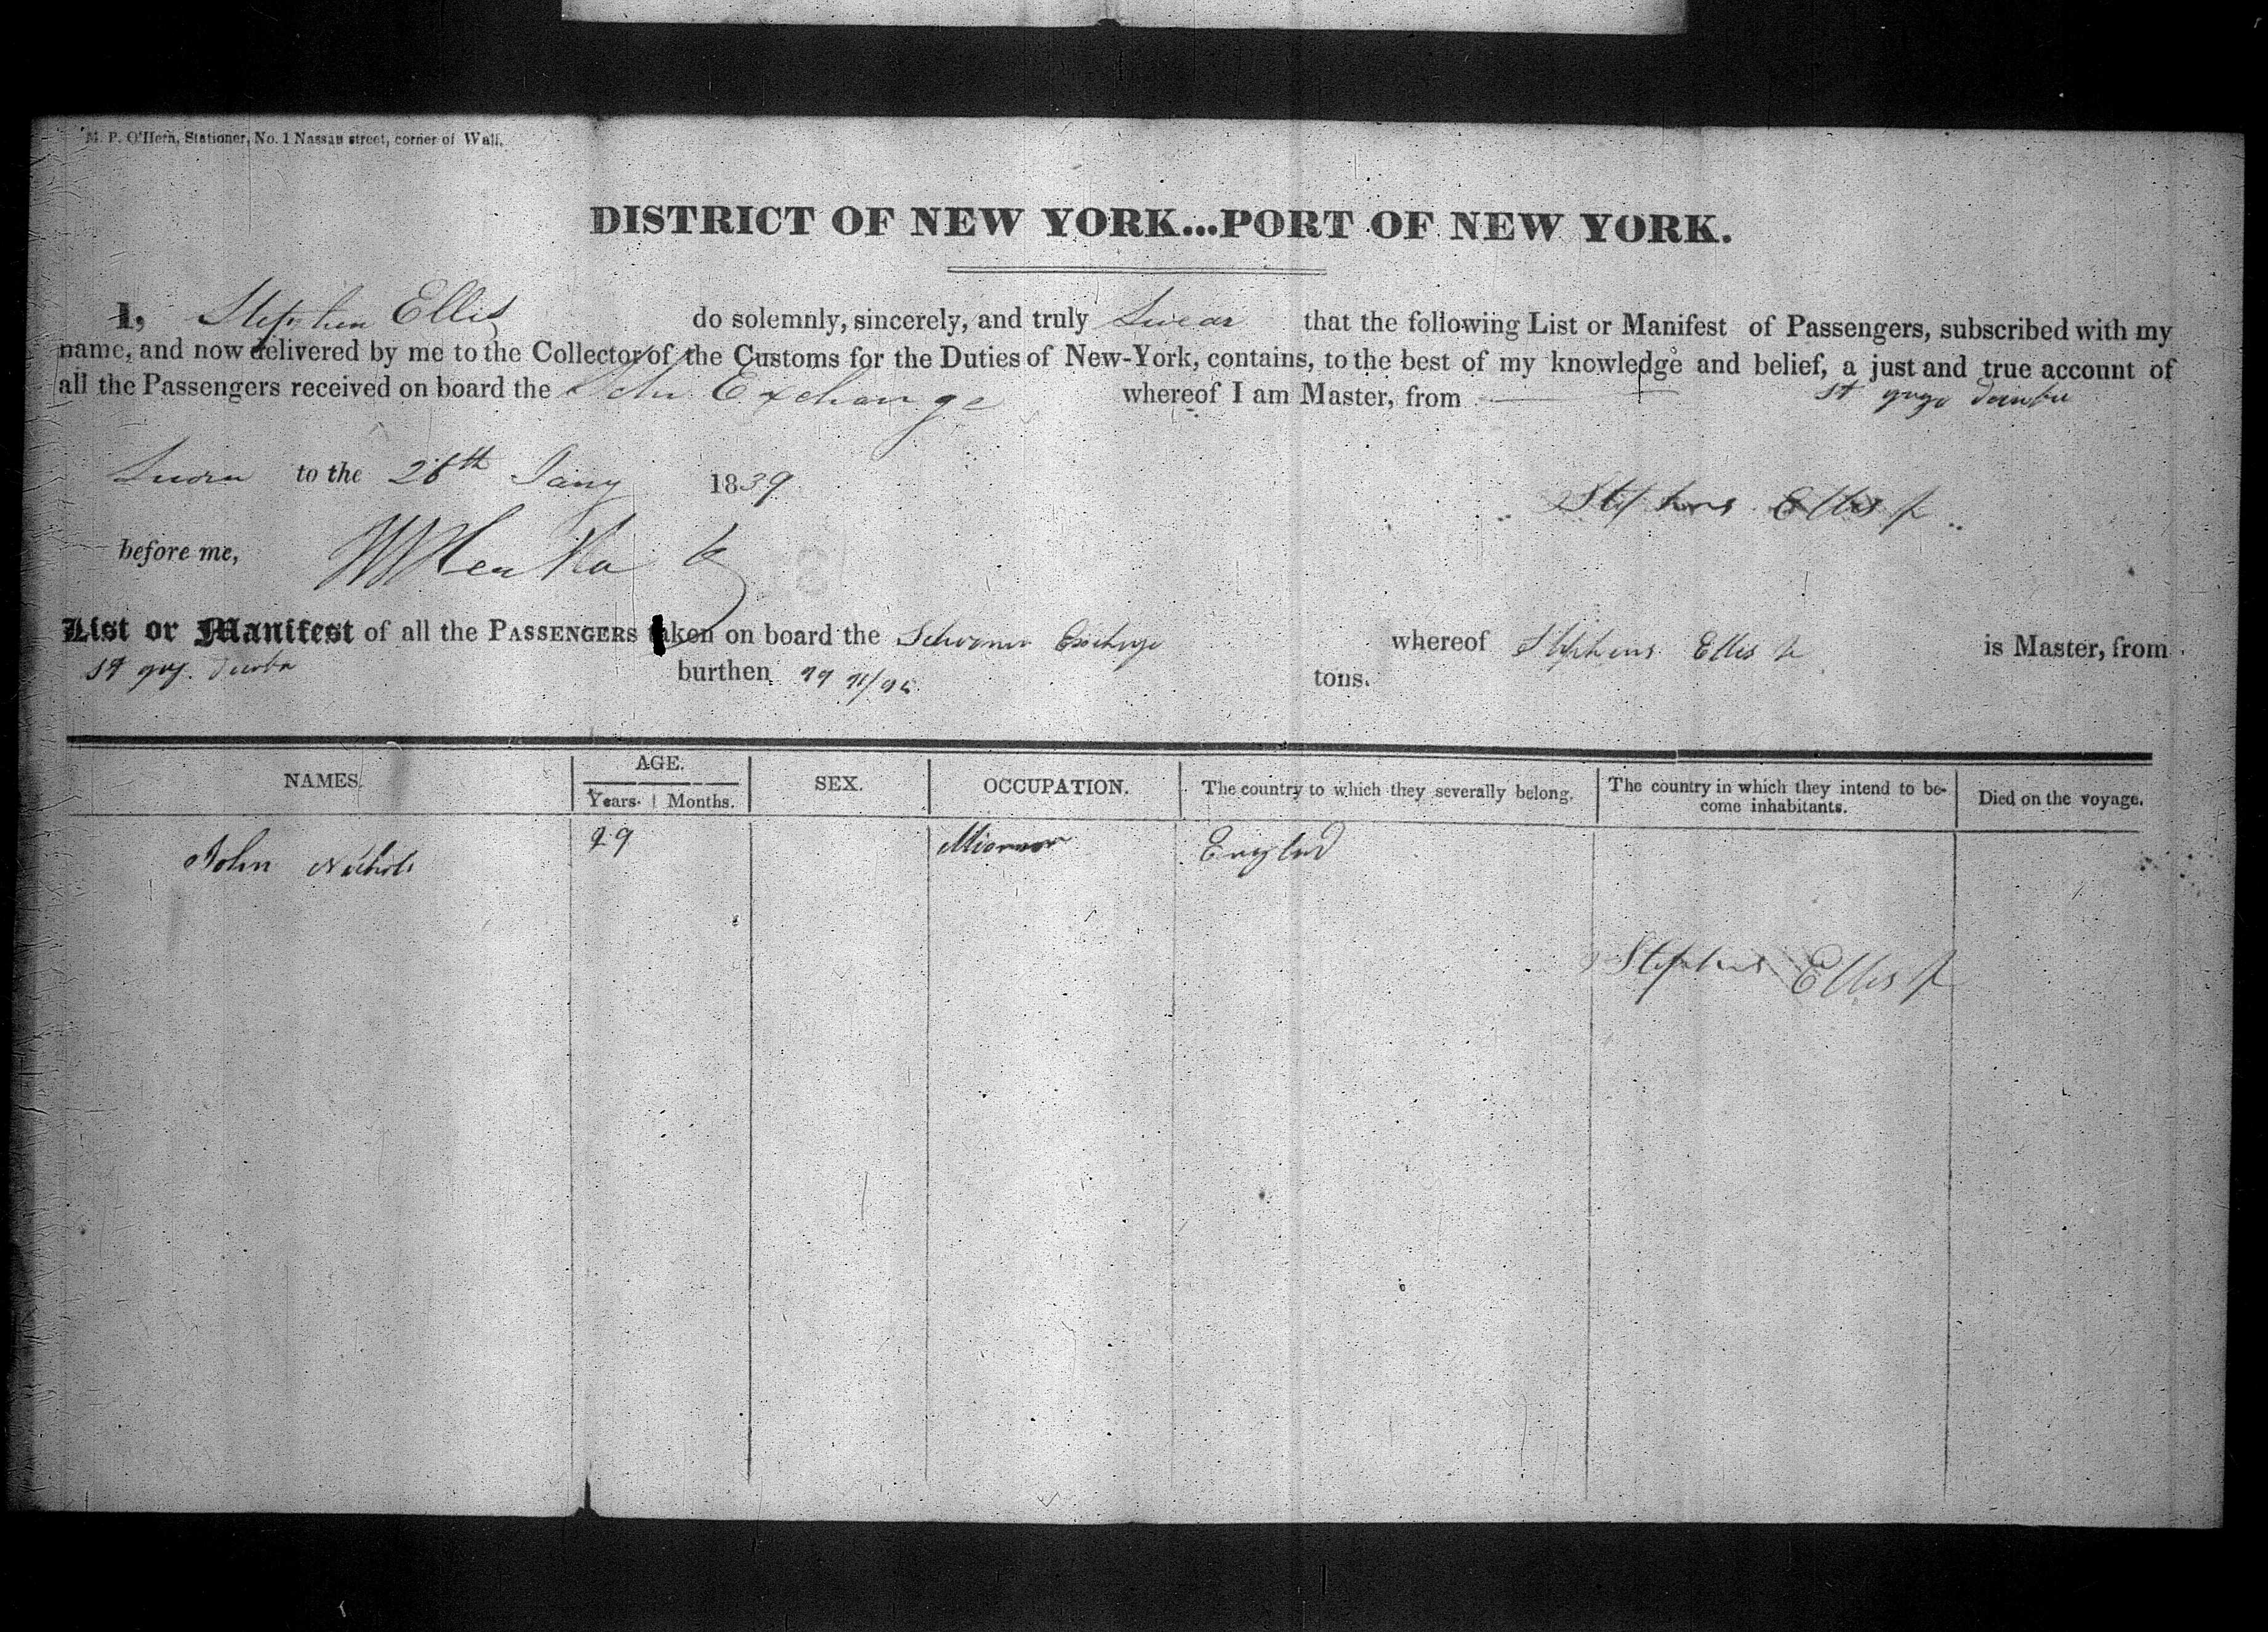 M. P. O'Hern, Stationer, No. 1 Nassau street, corner of Wall.
DISTRICT OF NEW YORK...PORT OF NEW YORK.
I, Stephen Ellis do solemnly, sincerely, and truly Swear that the following List or Manifest of Passengers, subscribed with my
name, and now delivered by me to the Collector of the Customs for the Duties of New-York, contains, to the best of my knowledge and belief, a just and true account of
all the Passengers received on board the Schr Exchange whereof I am Master, from St
Sworn to the 26th Jany 1839
Stephens Ellis Jr
before me,
List or Manifest of all the PASSENGERS taken on board the Schooner Exchange whereof Stephens Ellis Jr is Master, from
St burthen tons.
NAMES. AGE. SEX. OCCUPATION. The country to which they severally belong. The country in which they intend to be-come inhabitants. Died on the voyage.
Years. Months.
John Nichols 29 England
Stephens Ellis Jr